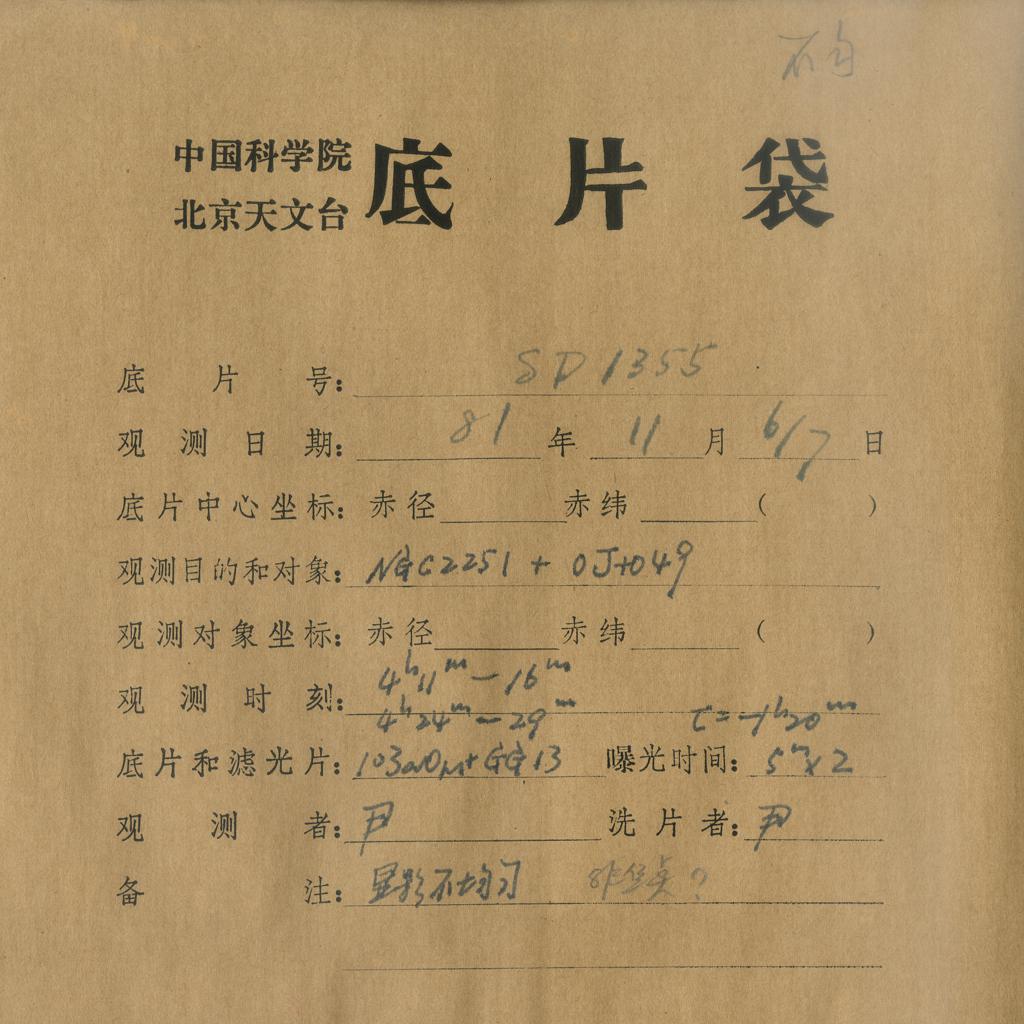 不匀
中国科学院
北京天文台 底片袋
底片号: SP1355
观测日期: 81年11月6/7日
底片中心坐标: 赤径 赤纬 ( )
观测目的和对象: NGC2251 + OJ+049
观测对象坐标: 赤径 赤纬 ( )
4h11m—16m
观测时刻: 4h24m—29m t=-1h20m
底片和滤光片: 103aO+GG13 曝光时间: 5m×2
观测者: 尹 洗片者: 尹
备注: 显影不均匀 ?